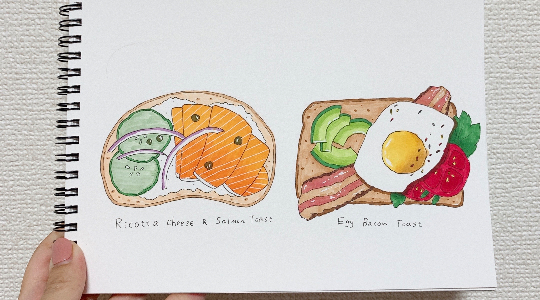 Ricotta cheese & Salmon Toast
Egg Bacon Toast